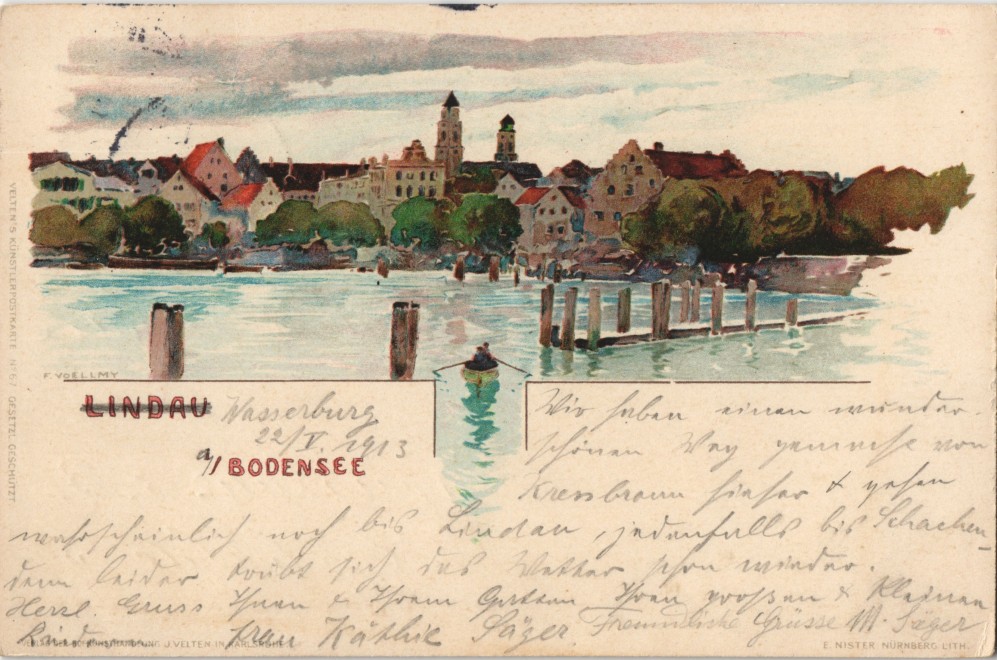 VELTEN'S KÜNSTLERPOSTKARTE No 67 GESETZL. GESCHÜTZT
F. VOELLMY
LINDAU Wasserburg
22/V. 1913
a/ BODENSEE
Wir haben einen wunder-
schönen Weg gemacht von
Kressbronn hieher & gehen
wahrscheinlich noch bis Lindau, jedenfalls bis Schachen,
denn leider trübt sich das Wetter schon wieder.
Herzl. Gruss Ihnen & Ihrem Gatten Ihren großen & kleinen
Kindern Frau Käthie Säger Freundliche Grüsse M. Säger
VERLAG DER HOFKUNSTHANDLUNG J. VELTEN IN KARLSRUHE
E. NISTER NÜRNBERG LITH.